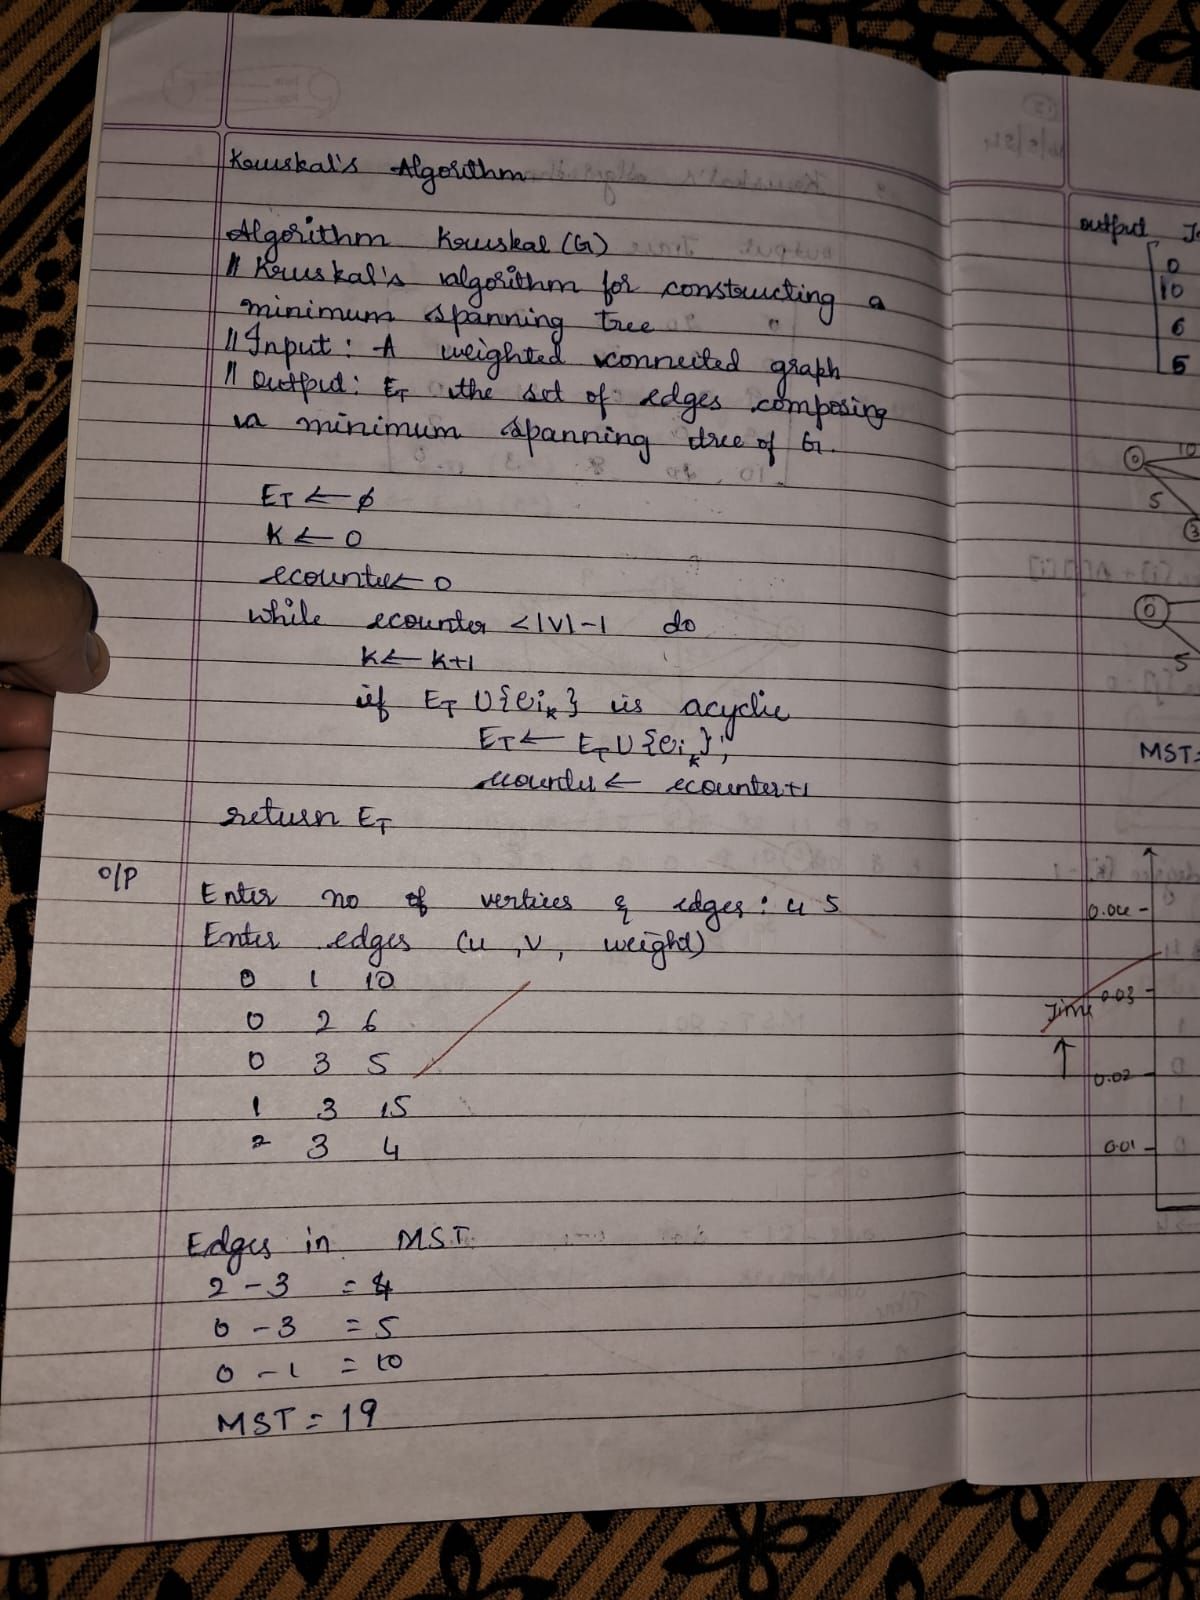 Kruskal's Algorithm
Algorithm Kruskal (G)
// Kruskal's algorithm for constructing a
minimum spanning tree
// Input : A weighted connected graph
// Output : E_T the set of edges composing
a minimum spanning tree of G.
E_T ← ∅
K ← 0
ecounter ← 0
while ecounter < |V| - 1 do
K ← K+1
if E_T ∪ {e_i_k} is acyclic
E_T ← E_T ∪ {e_i_k};
ecounter ← ecounter+1
return E_T
O/P
Enter no of vertices & edges : 4 5
Enter edges (u, v, weight)
0 1 10
0 2 6
0 3 5
1 3 15
2 3 4
Edges in MST
2 - 3 = 4
0 - 3 = 5
0 - 1 = 10
MST = 19
output
0
10
6
5
0 10
5
3
0
5
MST=
0.04
0.03
Time
0.02
0.01